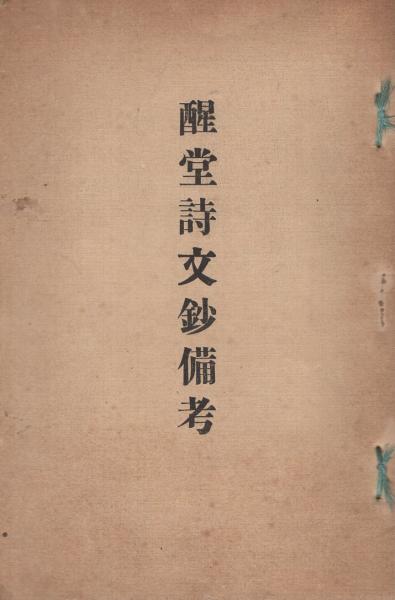 醒堂詩文鈔備考